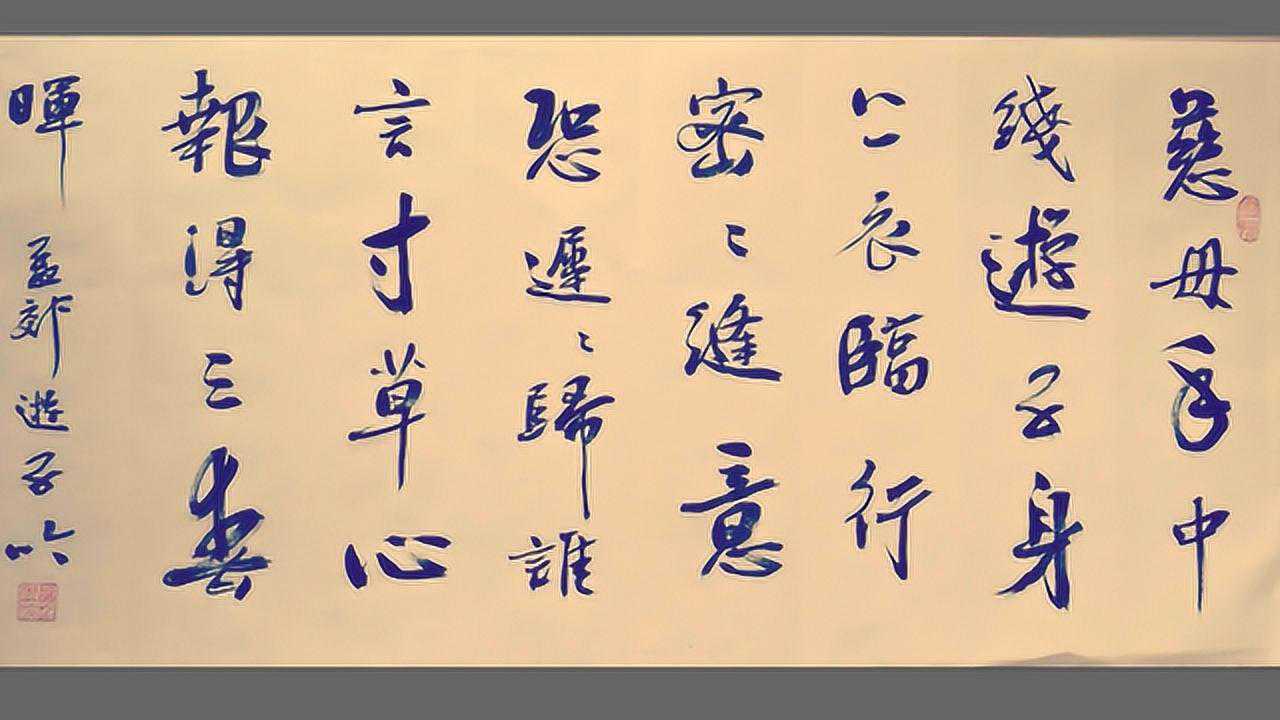 慈母手中
綫遊子身
上衣臨行
密〻縫意
恐遲〻歸誰
言寸草心
報得三春
暉 孟郊遊子吟